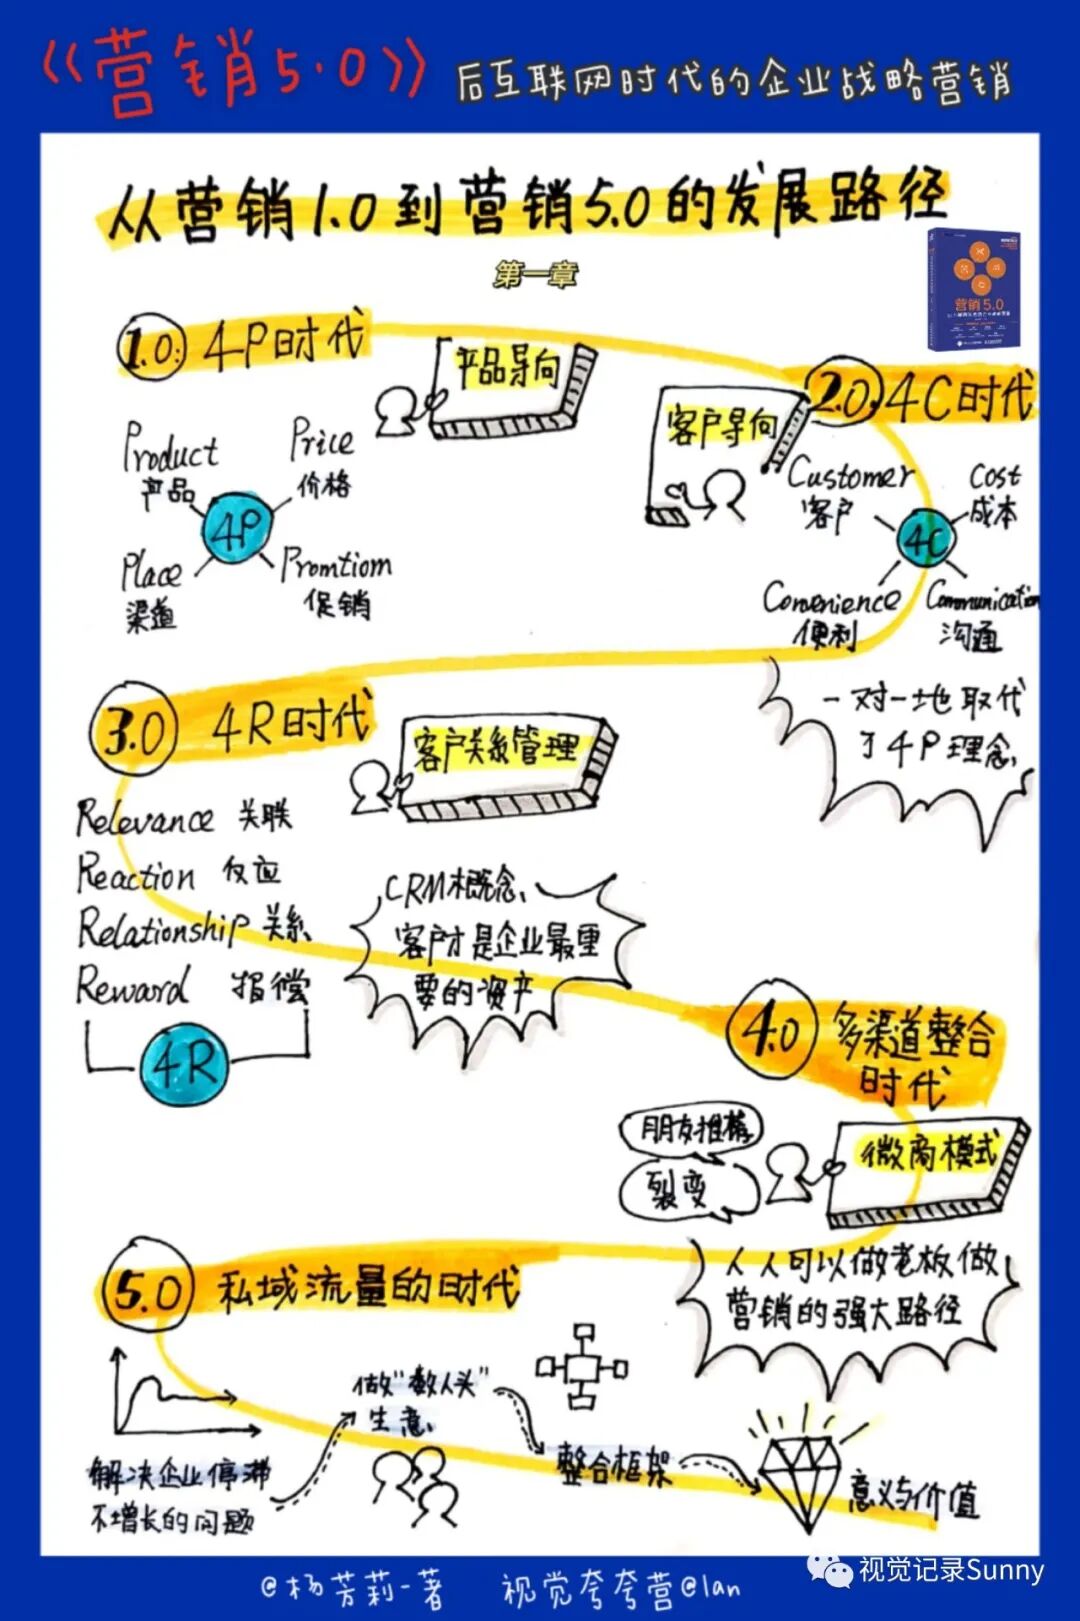 《营销5.0》后互联网时代的企业战略营销
从营销1.0到营销5.0的发展路径
第一章
营销5.0
1.0: 4P时代
产品导向
Product
产品
Price
价格
4P
Place
渠道
Promtiom
促销
2.0. 4C时代
客户导向
Customer
客户
Cost
成本
4C
Convenience
便利
Communication
沟通
一对一地取代
了4P理念
3.0 4R时代
客户关系管理
Relevance 关联
Reaction 反应
Relationship 关系
Reward 报偿
4R
CRM概念
客户才是企业最重
要的资产
4.0 多渠道整合
时代
朋友推荐
裂变
微商模式
人人可以做老板做
营销的强大路径
5.0 私域流量的时代
解决企业停滞
不增长的问题
做“数人头”
生意
整合框架
意义与价值
@杨芳莉-著 视觉夸夸营@lan
视觉记录Sunny